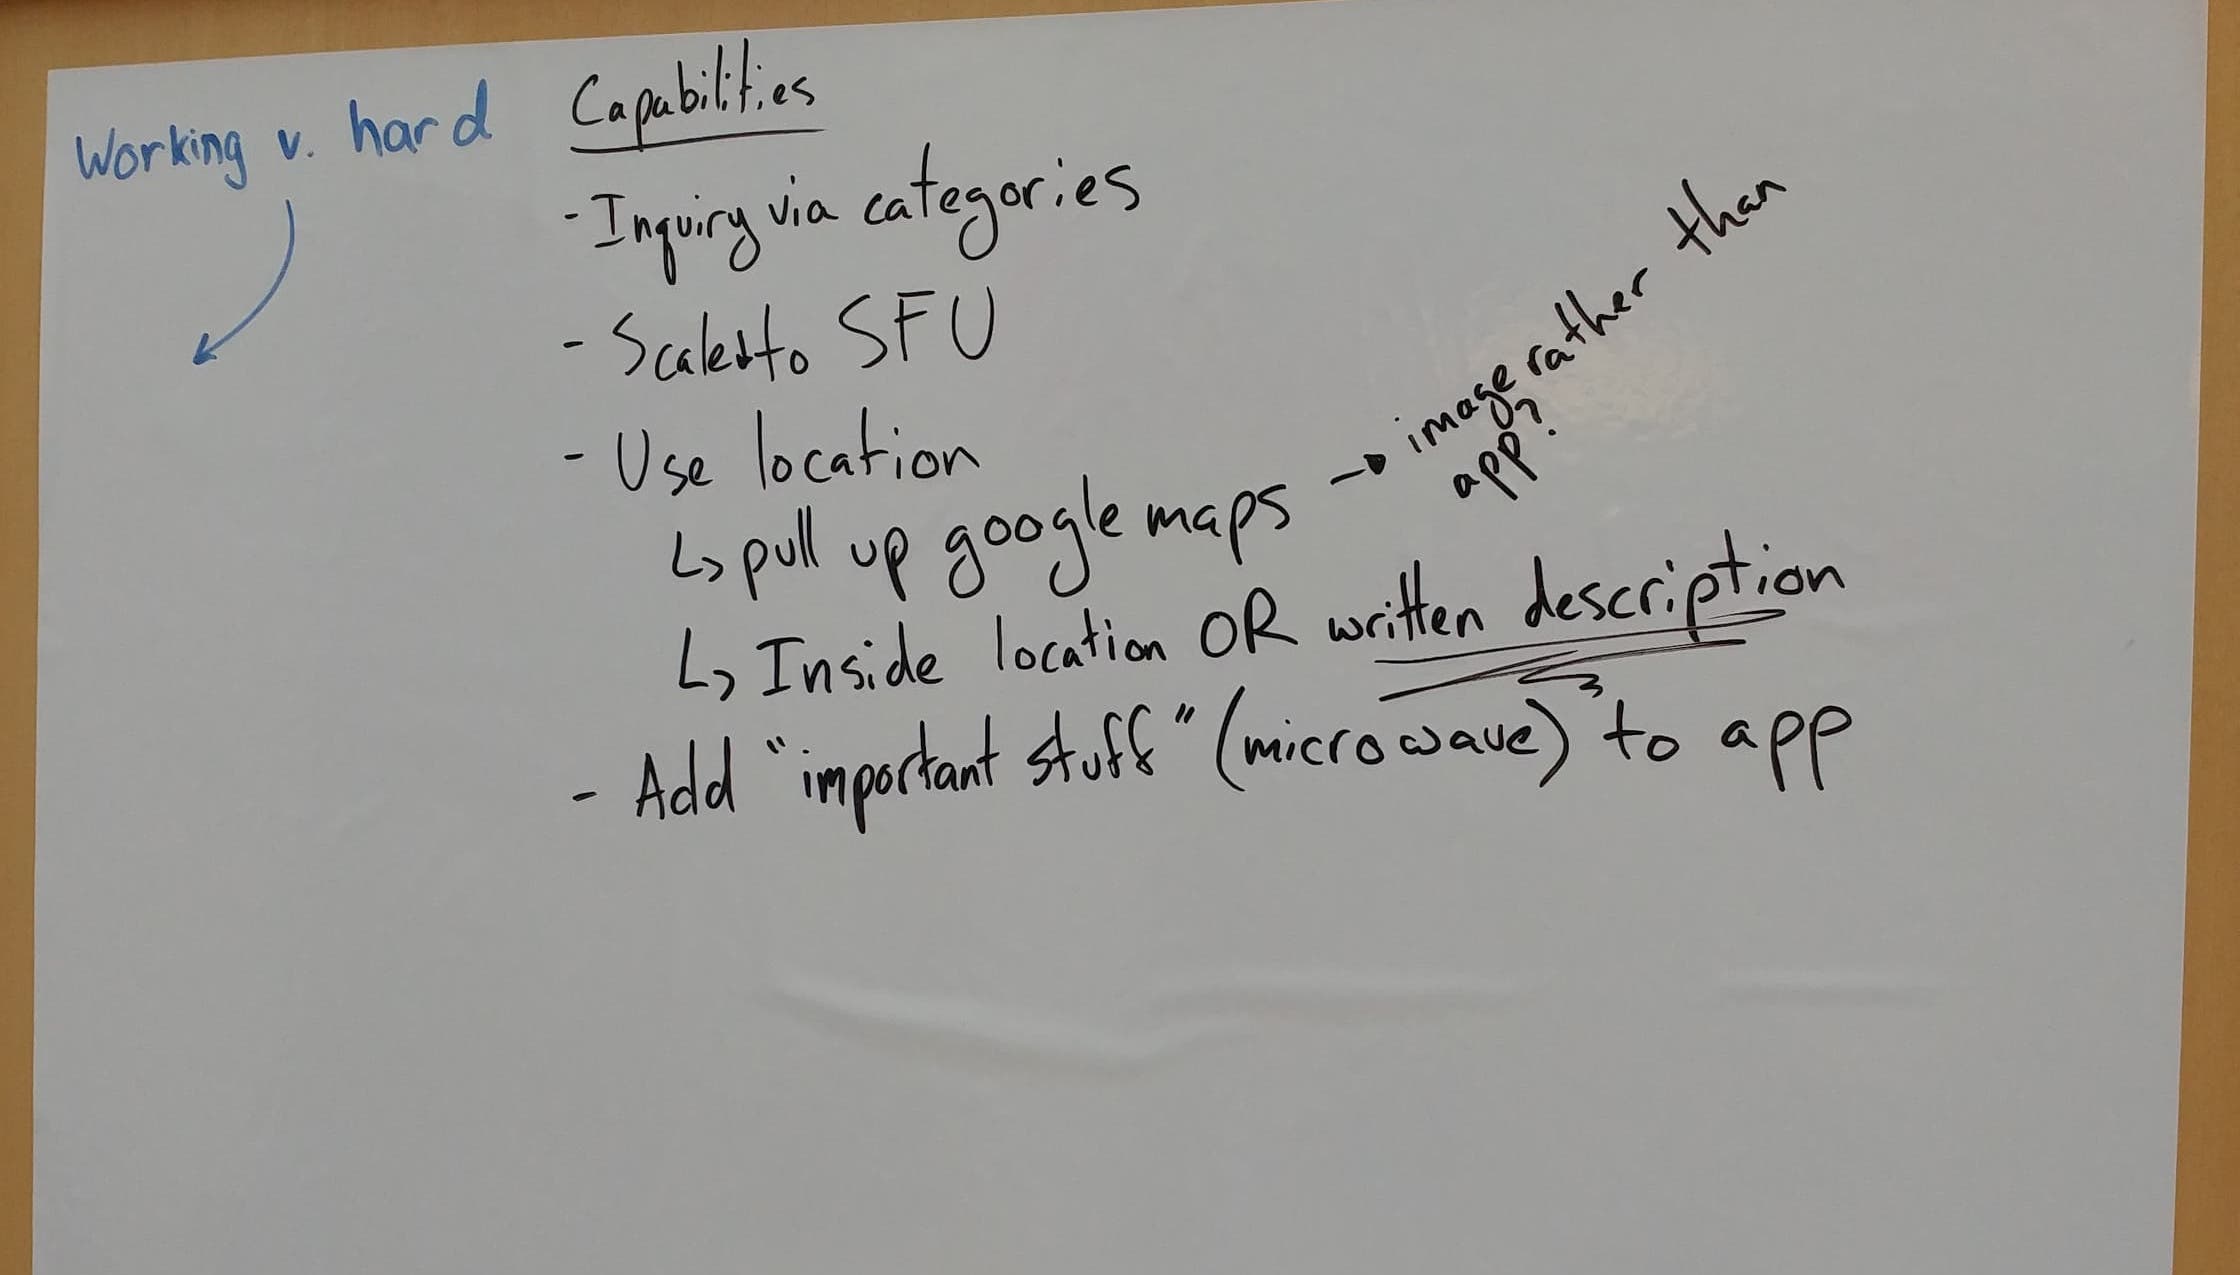 Working v. hard
Capabilities
- Inquiry via categories
- Scales to SFU
- Use location
↳ pull up google maps → image rather than
app?
↳ Inside location OR written description
- Add "important stuff" (microwave) to app